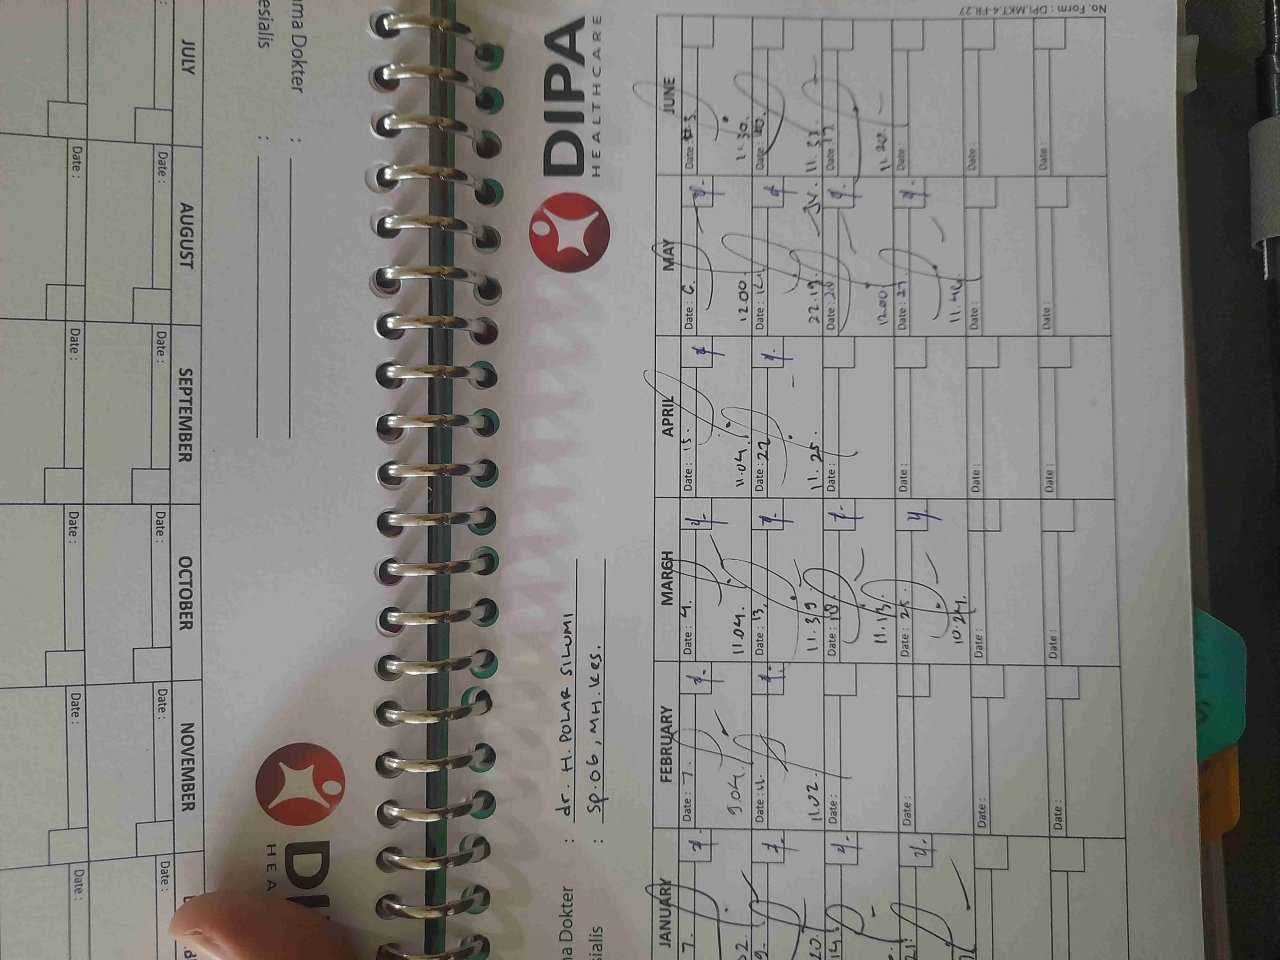 DIPA
HEALTHCARE
ma Dokter : dr. H. POLAR SILUMI
sialis : Sp.OG, MH.Kes.
JANUARY
FEBRUARY
MARCH
APRIL
MAY
JUNE
7.
Date : 7.
Date : 4.
Date : 15.
Date : 6.
Date : 3.
9.04
11.04.
11.04.
12.00
11.30.
9.
Date : 11.
Date : 13.
Date : 22
Date :
Date : 10.
11.02
11.39
11.25.
22.19
11.33
14.
Date :
Date : 18.
Date :
Date : 20
Date : 17
11.13.
12.00
11.20.
21.
Date :
Date : 25.
Date :
Date : 27
Date :
10.24.
11.42.
Date :
Date :
Date :
Date :
Date :
Date :
Date :
Date :
Date :
Date :
No. Form : DPI.MKT.4-FR.27
DI
HEA
ama Dokter :
esialis :
JULY
AUGUST
SEPTEMBER
OCTOBER
NOVEMBER
Date :
Date :
Date :
Date :
Date :
Date :
Date :
Date :
Date :
Date :